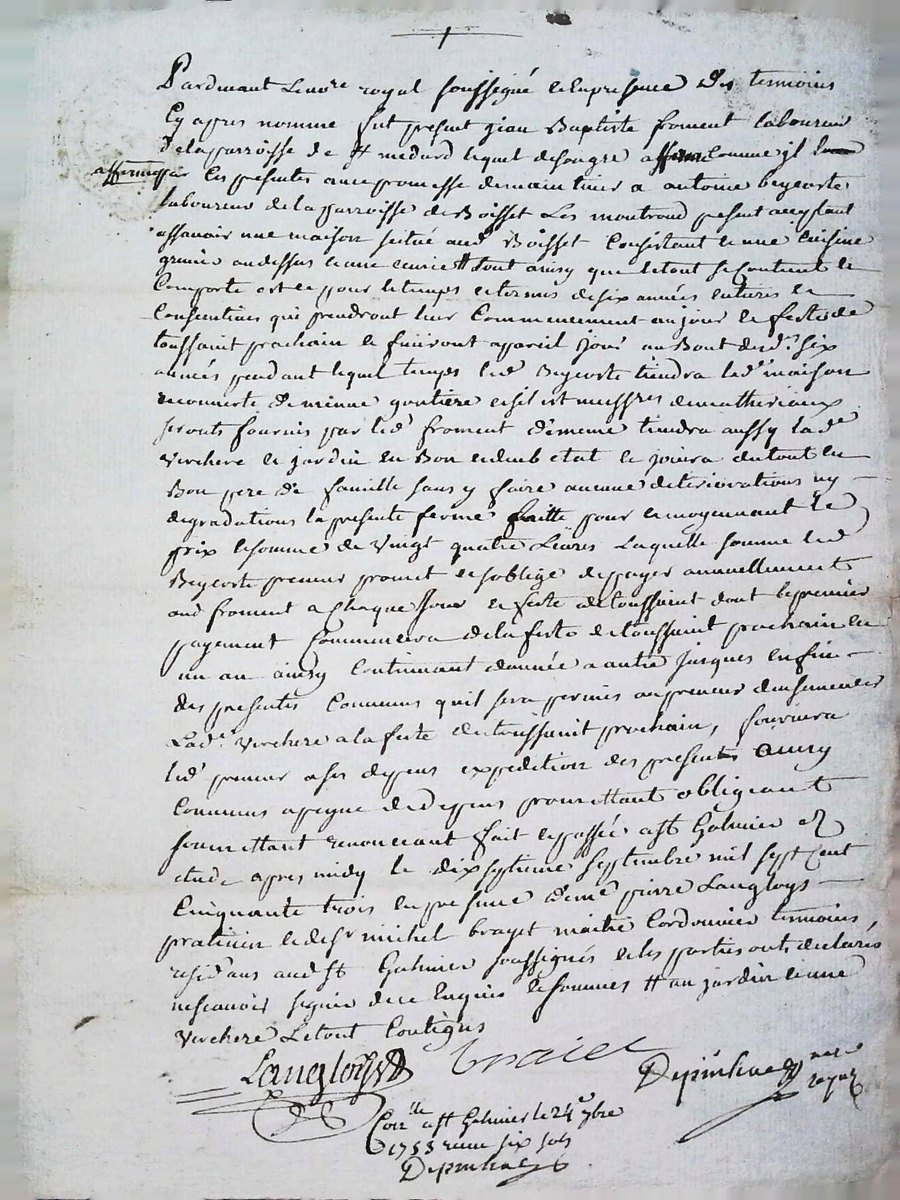 Pardevant Lenore royal soussigné et en presence Des temoins
Cy apres nomme fut present jean Baptiste froment laboureur
De la parroisse de st medard lequel de son gre afferme comme il
afferme par Ces presentes avec promesse de maintenir a antoine beycoste
laboureur de la parroisse de Boisset Les montrond present acceptant
assavoir une maison situé aud Boisset Consistant en une Cuisine
grenier au dessus et une ecurie # tout ainsy que le tout se Contient et
Comporte et ce pour le temps et termes de six années entieres et
Consecutives qui prendront leur Commencement au jour et feste de
toussaint prochain et finiront a pareil jour au Bout desd.s six
années pendant lequel temps led Beycoste tiendra lad maison
recouverte de menue goutiere et s'il est de matheriaux
seronts fournis par led froment de meme tiendra aussy lad
Verchere et jardin en Bon et deub etat et jouira du tout en
Bon pere de famille sans y faire aucune deteriorations ny
degradations la presente ferme faitte pour et moyennant le
prix et somme de vingt quatre Livres Laquelle somme led
Beycoste preneur promet et soblige de payer annuellement
aud froment a Chaque jour et feste de toussaint dont le premier
payement Commencera de la feste de toussaint prochain en
un an ainsy Continuant dannée a autre jusques en fin
des presentes Convenus quil sera permis au preneur densemencer
Lad. Verchere a la feste de toussaint prochain, fournira
led preneur a ses depens expedition des presentes ainsy
Convenus a peyne de depens promettant obligeant
soumettant renonceant fait et passée a st Galmier
etude apres midy le dix septieme septembre mil sept Cent
Cinquante trois en presence de me pierre Langloys
praticien et de sr michel brayet maitre Cordonnier temoins
residans aud st Galmier soussignés et les parties onts declarés
ne scavoir signer de ce Enquis et sommés # un jardin et une
Verchere Le tout Contigus
Langloys
Depinhac nore
royal
Con.lle a st Galmier le 24 7bre
1753 reçu six sols
Depinhac